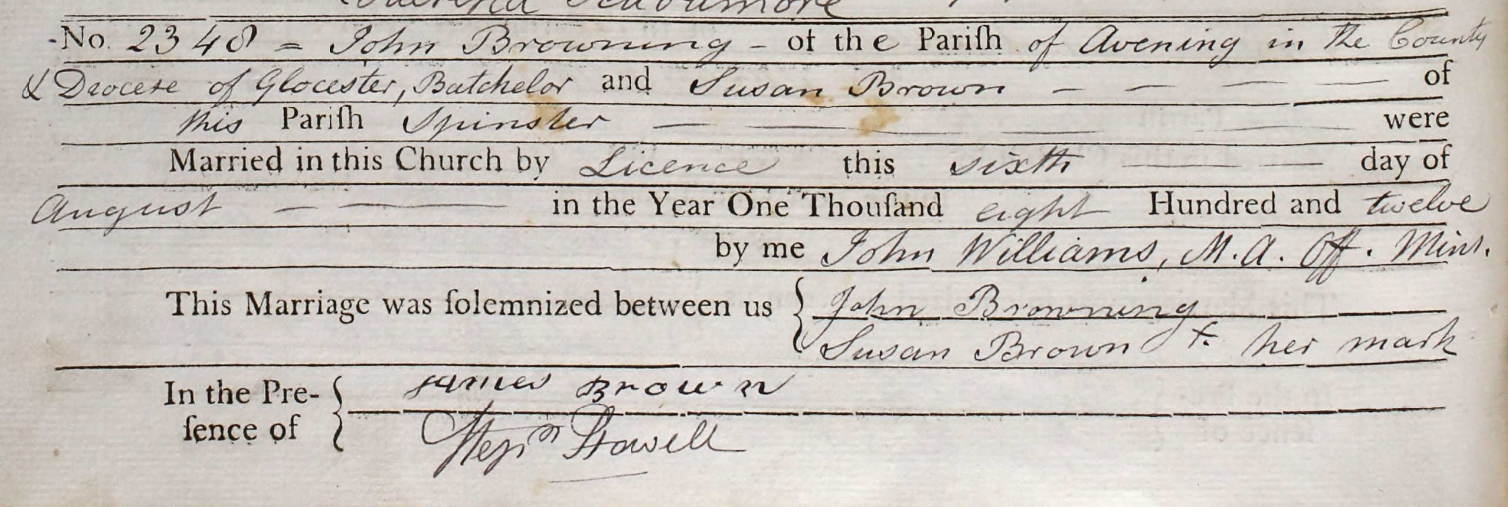 No. 2348 = John Browning - of the Pariſh of Avening in the County
& Diocese of Glocester, Batchelor and Susan Brown - - - - of
this Pariſh Spinster - - - - - - were
Married in this Church by Licence this sixth - day of
August - - in the Year One Thouſand eight Hundred and twelve
by me John Williams, M.A. Off. Minr.
This Marriage was ſolemnized between us { John Browning
Susan Brown + her mark
In the Pre- { James Brown
ſence of Stepn Stowell